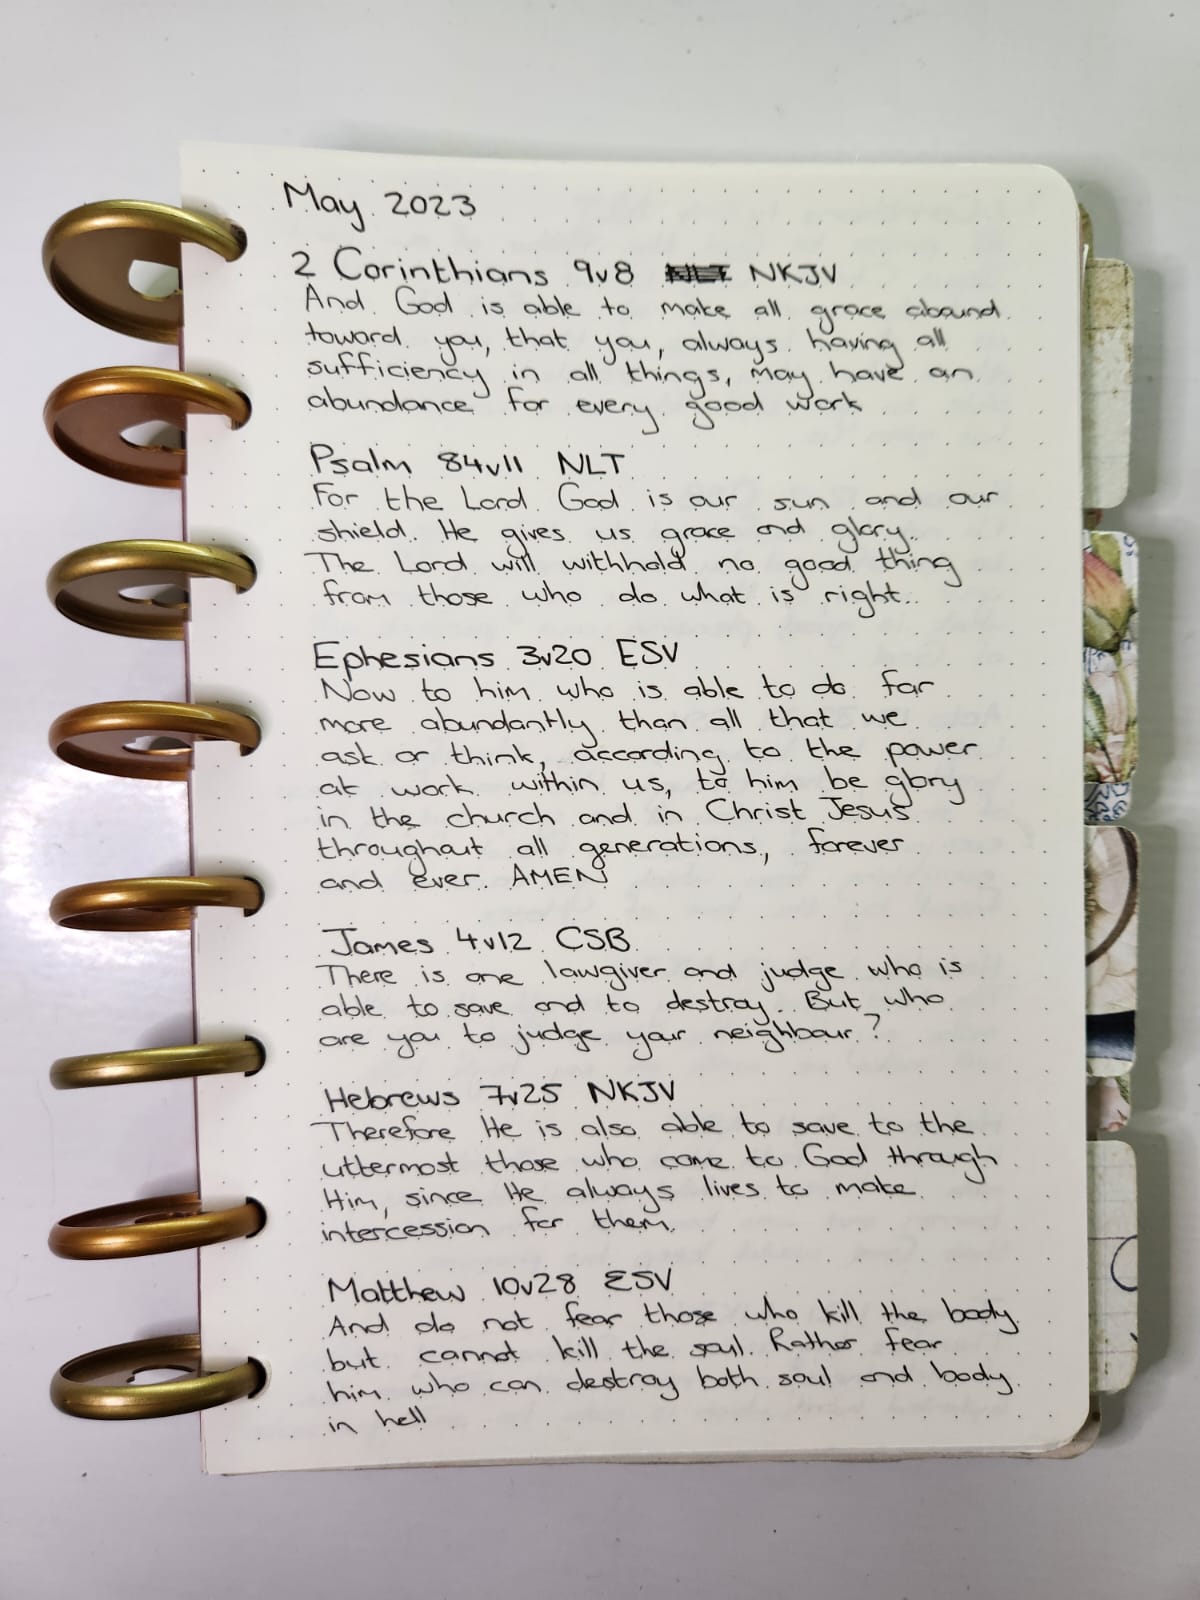 May 2023
2 Corinthians 9v8 NLT NKJV
And God is able to make all grace abound
toward you, that you, always having all
sufficiency in all things, may have an
abundance for every good work
Psalm 84v11 NLT
For the Lord God is our sun and our
shield. He gives us grace and glory.
The Lord will withhold no good thing
from those who do what is right.
Ephesians 3v20 ESV
Now to him who is able to do far
more abundantly than all that we
ask or think, according to the power
at work within us, to him be glory
in the church and in Christ Jesus
throughout all generations, forever
and ever. AMEN
James 4v12 CSB
There is one lawgiver and judge who is
able to save and to destroy. But who
are you to judge your neighbour?
Hebrews 7v25 NKJV
Therefore He is also able to save to the
uttermost those who come to God through
Him, since He always lives to make
intercession for them.
Matthew 10v28 ESV
And do not fear those who kill the body
but cannot kill the soul. Rather fear
him who can destroy both soul and body
in hell